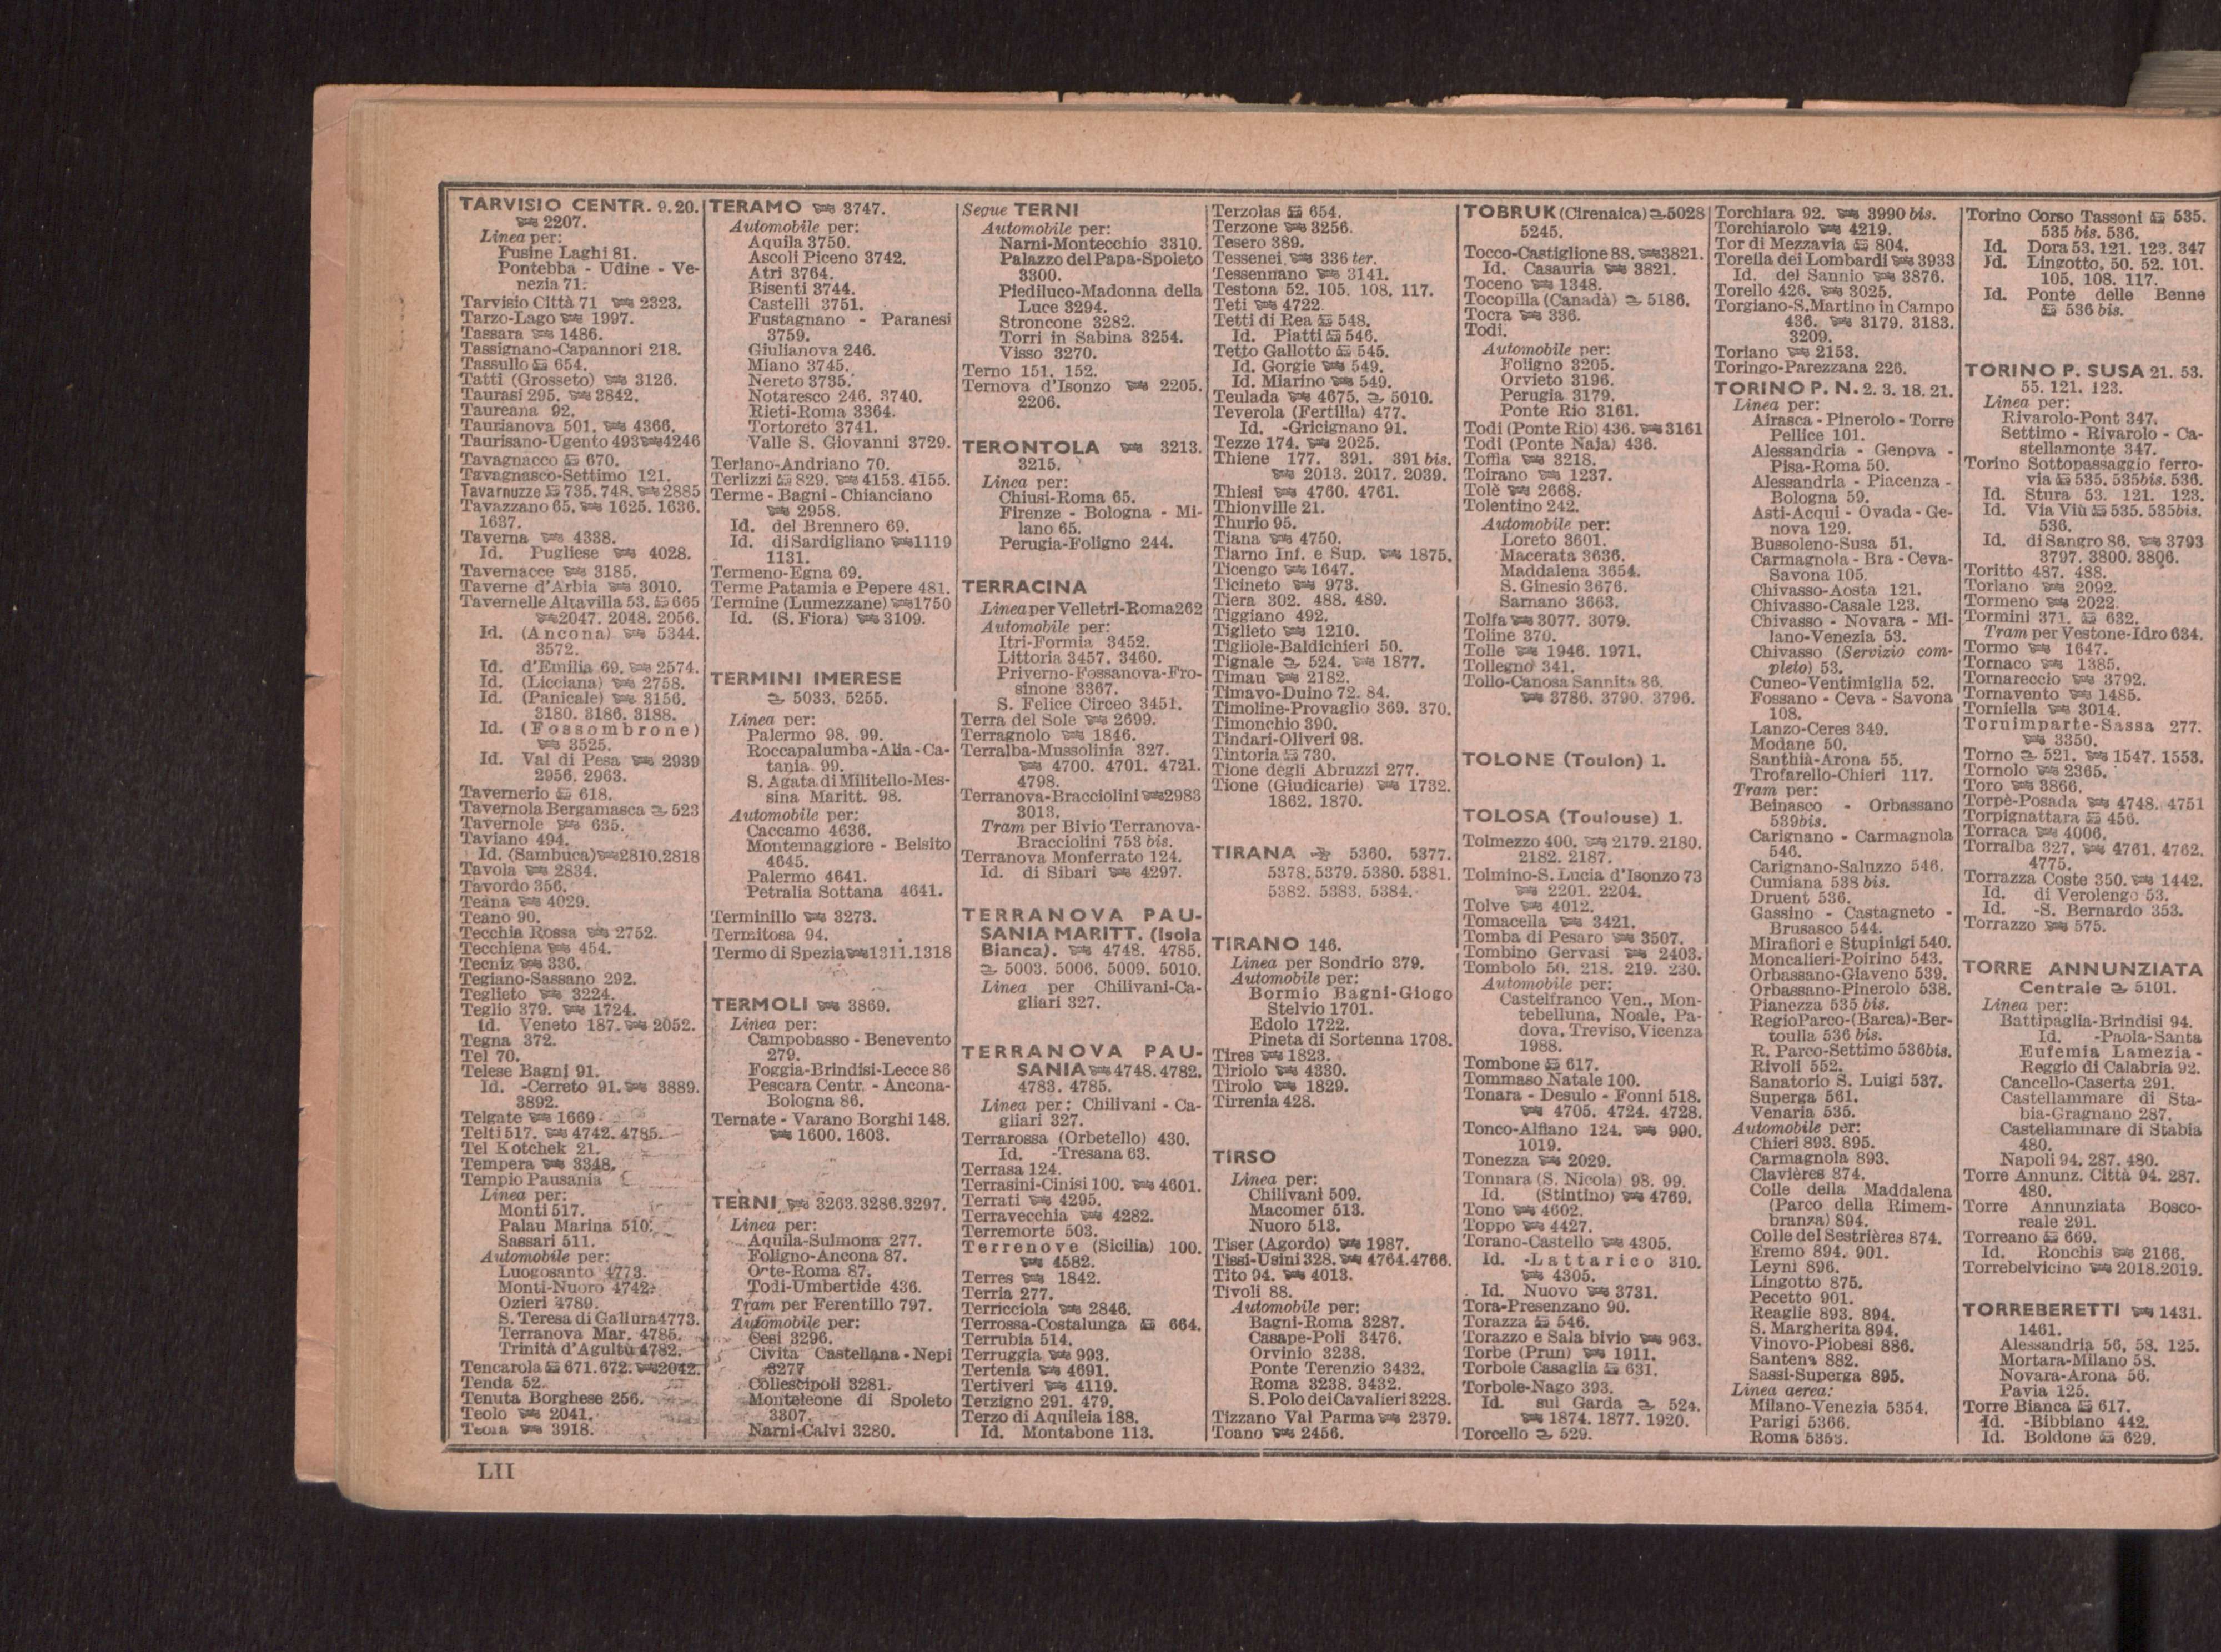 TARVISIO CENTR. 9. 20.
2207.
Linea per:
Fusine Laghi 81.
Pontebba - Udine - Ve-
nezia 71.
Tarvisio Città 71 2323.
Tarzo-Lago 1997.
Tassara 1486.
Tassignano-Capannori 218.
Tassullo 654.
Tatti (Grosseto) 3126.
Taurasi 295. 3842.
Taureana 92.
Taurianova 501. 4366.
Taurisano-Ugento 493 4246
Tavagnacco 670.
Tavagnasco-Settimo 121.
Tavarnuzze 735. 748. 2885
Tavazzano 65. 1625. 1636.
1637.
Taverna 4338.
Id. Pugliese 4028.
Tavernacce 3185.
Taverne d'Arbia 3010.
Tavernelle Altavilla 53. 665
2047. 2048. 2056.
Id. (Ancona) 5344.
3572.
Id. d'Emilia 69. 2574.
Id. (Licciana) 2758.
Id. (Panicale) 3156.
3180. 3186. 3188.
Id. (Fossombrone)
3525.
Id. Val di Pesa 2939
2956. 2963.
Tavernerio 618.
Tavernola Bergamasca 523
Tavernole 635.
Taviano 494.
Id. (Sambuca) 2810. 2818
Tavola 2834.
Tavordo 356.
Teana 4029.
Teano 90.
Tecchia Rossa 2752.
Tecchiena 454.
Tecniz 336.
Tegiano-Sassano 292.
Teglieto 3224.
Teglio 379. 1724.
Id. Veneto 187. 2052.
Tegna 372.
Tel 70.
Telese Bagni 91.
Id. -Cerreto 91. 3889.
3892.
Telgate 1669.
Telti 517. 4742. 4785.
Tel Kotchek 21.
Tempera 3348.
Tempio Pausania
Linea per:
Monti 517.
Palau Marina 510.
Sassari 511.
Automobile per:
Luogosanto 4773.
Monti-Nuoro 4742.
Ozieri 4789.
S. Teresa di Gallura 4773.
Terranova Mar. 4785.
Trinità d'Agultu 4782.
Tencarola 671. 672. 2042.
Tenda 52.
Tenuta Borghese 256.
Teolo 2041.
Teora 3918.
TERAMO 3747.
Automobile per:
Aquila 3750.
Ascoli Piceno 3742.
Atri 3764.
Bisenti 3744.
Castelli 3751.
Fustagnano - Paranesi
3759.
Giulianova 246.
Miano 3745.
Nereto 3735.
Notaresco 246. 3740.
Rieti-Roma 3364.
Tortoreto 3741.
Valle S. Giovanni 3729.
Terlano-Andriano 70.
Terlizzi 829. 4153. 4155.
Terme - Bagni - Chianciano
2958.
Id. del Brennero 69.
Id. di Sardigliano 1119
1131.
Termeno-Egna 69.
Terme Patamia e Pepere 481.
Termine (Lumezzane) 1750
Id. (S. Fiora) 3109.
TERMINI IMERESE
5033. 5255.
Linea per:
Palermo 98. 99.
Roccapalumba-Alia-Ca-
tania 99.
S. Agata di Militello-Mes-
sina Maritt. 98.
Automobile per:
Caccamo 4636.
Montemaggiore - Belsito
4645.
Palermo 4641.
Petralia Sottana 4641.
Terminillo 3273.
Termitosa 94.
Termo di Spezia 1311. 1318
TERMOLI 3869.
Linea per:
Campobasso - Benevento
279.
Foggia-Brindisi-Lecce 86
Pescara Centr. - Ancona-
Bologna 86.
Ternate - Varano Borghi 148.
1600. 1603.
TERNI 3263. 3286. 3297.
Linea per:
Aquila-Sulmona 277.
Foligno-Ancona 87.
Orte-Roma 87.
Todi-Umbertide 436.
Tram per Ferentillo 797.
Automobile per:
Cesi 3296.
Civita Castellana - Nepi
3277
Collescipoli 3281.
Monteleone di Spoleto
3307.
Narni-Calvi 3280.
Segue TERNI
Automobile per:
Narni-Montecchio 3310.
Palazzo del Papa-Spoleto
3300.
Piediluco-Madonna della
Luce 3294.
Stroncone 3282.
Torri in Sabina 3254.
Visso 3270.
Terno 151. 152.
Ternova d'Isonzo 2205.
2206.
TERONTOLA 3213.
3215.
Linea per:
Chiusi-Roma 65.
Firenze - Bologna - Mi-
lano 65.
Perugia-Foligno 244.
TERRACINA
Linea per Velletri-Roma 262
Automobile per:
Itri-Formia 3452.
Littoria 3457. 3460.
Priverno-Fossanova-Fro-
sinone 3367.
S. Felice Circeo 3451.
Terra del Sole 2699.
Terragnolo 1846.
Terralba-Mussolinia 327.
4700. 4701. 4721.
4798.
Terranova-Bracciolini 2983
3013.
Tram per Bivio Terranova-
Bracciolini 753 bis.
Terranova Monferrato 124.
Id. di Sibari 4297.
TERRANOVA PAU-
SANIA MARITT. (Isola
Bianca). 4748. 4785.
5003. 5006. 5009. 5010.
Linea per Chilivani-Ca-
gliari 327.
TERRANOVA PAU-
SANIA 4748. 4782.
4783. 4785.
Linea per: Chilivani - Ca-
gliari 327.
Terrarossa (Orbetello) 430.
Id. -Tresana 63.
Terrasa 124.
Terrasini-Cinisi 100. 4601.
Terrati 4295.
Terravecchia 4282.
Terremorte 503.
Terrenove (Sicilia) 100.
4582.
Terres 1842.
Terria 277.
Terricciola 2846.
Terrossa-Costalunga 664.
Terrubia 514.
Terruggia 993.
Tertenia 4691.
Tertiveri 4119.
Terzigno 291. 479.
Terzo di Aquileia 188.
Id. Montabone 113.
Terzolas 654.
Terzone 3256.
Tesero 389.
Tessenei 336 ter.
Tessennano 3141.
Testona 52. 105. 108. 117.
Teti 4722.
Tetti di Rea 548.
Id. Piatti 546.
Tetto Gallotto 545.
Id. Gorgie 549.
Id. Miarino 549.
Teulada 4675. 5010.
Teverola (Fertilia) 477.
Id. -Gricignano 91.
Tezze 174. 2025.
Thiene 177. 391. 391 bis.
2013. 2017. 2039.
Thiesi 4760. 4761.
Thionville 21.
Thurio 95.
Tiana 4750.
Tiarno Inf. e Sup. 1875.
Ticengo 1647.
Ticineto 973.
Tiera 302. 488. 489.
Tiggiano 492.
Tiglieto 1210.
Tigliole-Baldichieri 50.
Tignale 524. 1877.
Timau 2182.
Timavo-Duino 72. 84.
Timoline-Provaglio 369. 370.
Timonchio 390.
Tindari-Oliveri 98.
Tintoria 730.
Tione degli Abruzzi 277.
Tione (Giudicarie) 1732.
1862. 1870.
TIRANA 5360. 5377.
5378. 5379. 5380. 5381.
5382. 5383. 5384.
TIRANO 146.
Linea per Sondrio 379.
Automobile per:
Bormio Bagni-Giogo
Stelvio 1701.
Edolo 1722.
Pineta di Sortenna 1708.
Tires 1823.
Tiriolo 4330.
Tirolo 1829.
Tirrenia 428.
TIRSO
Linea per:
Chilivani 509.
Macomer 513.
Nuoro 513.
Tiser (Agordo) 1987.
Tissi-Usini 328. 4764. 4766.
Tito 94. 4013.
Tivoli 88.
Automobile per:
Bagni-Roma 3287.
Casape-Poli 3476.
Orvinio 3238.
Ponte Terenzio 3432.
Roma 3238. 3432.
S. Polo dei Cavalieri 3228.
Tizzano Val Parma 2379.
Toano 2456.
TOBRUK (Cirenaica) 5028
5245.
Tocco-Castiglione 88. 3821.
Id. Casauria 3821.
Toceno 1348.
Tocopilla (Canadà) 5186.
Tocra 336.
Todi.
Automobile per:
Foligno 3205.
Orvieto 3196.
Perugia 3179.
Ponte Rio 3161.
Todi (Ponte Rio) 436. 3161
Todi (Ponte Naja) 436.
Toffia 3218.
Toirano 1237.
Tolè 2668.
Tolentino 242.
Automobile per:
Loreto 3601.
Macerata 3636.
Maddalena 3654.
S. Ginesio 3676.
Sarnano 3663.
Tolfa 3077. 3079.
Toline 370.
Tolle 1946. 1971.
Tollegno 341.
Tollo-Canosa Sannita 86.
3786. 3790. 3796.
TOLONE (Toulon) 1.
TOLOSA (Toulouse) 1.
Tolmezzo 400. 2179. 2180.
2182. 2187.
Tolmino-S. Lucia d'Isonzo 73
2201. 2204.
Tolve 4012.
Tomacella 3421.
Tomba di Pesaro 3507.
Tombino Gervasi 2403.
Tombolo 50. 218. 219. 230.
Automobile per:
Castelfranco Ven., Mon-
tebelluna, Noale, Pa-
dova, Treviso, Vicenza
1988.
Tombone 617.
Tommaso Natale 100.
Tonara - Desulo - Fonni 518.
4705. 4724. 4728.
Tonco-Alfiano 124. 990.
1019.
Tonezza 2029.
Tonnara (S. Nicola) 98. 99.
Id. (Stintino) 4769.
Tono 4602.
Toppo 4427.
Torano-Castello 4305.
Id. -Lattarico 310.
4305.
Id. Nuovo 3731.
Tora-Presenzano 90.
Torazza 546.
Torazzo e Sala bivio 963.
Torbe (Prun) 1911.
Torbole Casaglia 631.
Torbole-Nago 393.
Id. sul Garda 524.
1874. 1877. 1920.
Torcello 529.
Torchiara 92. 3990 bis.
Torchiarolo 4219.
Tor di Mezzavia 804.
Torella dei Lombardi 3933
Id. del Sannio 3876.
Torello 426. 3025.
Torgiano-S. Martino in Campo
436. 3179. 3183.
3209.
Toriano 2153.
Toringo-Parezzana 226.
TORINO P. N. 2. 3. 18. 21.
Linea per:
Airasca - Pinerolo - Torre
Pellice 101.
Alessandria - Genova -
Pisa-Roma 50.
Alessandria - Piacenza -
Bologna 59.
Asti-Acqui - Ovada - Ge-
nova 129.
Bussoleno-Susa 51.
Carmagnola - Bra - Ceva-
Savona 105.
Chivasso-Aosta 121.
Chivasso-Casale 123.
Chivasso - Novara - Mi-
lano-Venezia 53.
Chivasso (Servizio com-
pleto) 53.
Cuneo-Ventimiglia 52.
Fossano - Ceva - Savona
108.
Lanzo-Ceres 349.
Modane 50.
Santhià-Arona 55.
Trofarello-Chieri 117.
Tram per:
Beinasco - Orbassano
539bis.
Carignano - Carmagnola
546.
Carignano-Saluzzo 546.
Cumiana 538 bis.
Druent 536.
Gassino - Castagneto -
Brusasco 544.
Mirafiori e Stupinigi 540.
Moncalieri-Poirino 543.
Orbassano-Giaveno 539.
Orbassano-Pinerolo 538.
Pianezza 535 bis.
Regio Parco-(Barca)-Ber-
toulla 536 bis.
R. Parco-Settimo 536bis.
Rivoli 552.
Sanatorio S. Luigi 537.
Superga 561.
Venaria 535.
Automobile per:
Chieri 893. 895.
Carmagnola 893.
Clavières 874.
Colle della Maddalena
(Parco della Rimem-
branza) 894.
Colle del Sestrières 874.
Eremo 894. 901.
Leynì 896.
Lingotto 875.
Pecetto 901.
Reaglie 893. 894.
S. Margherita 894.
Vinovo-Piobesi 886.
Santena 882.
Sassi-Superga 895.
Linea aerea:
Milano-Venezia 5354.
Parigi 5366.
Roma 5353.
Torino Corso Tassoni 535.
535 bis. 536.
Id. Dora 53. 121. 123. 347
Id. Lingotto, 50. 52. 101.
105. 108. 117.
Id. Ponte delle Benne
536 bis.
TORINO P. SUSA 21. 53.
55. 121. 123.
Linea per:
Rivarolo-Pont 347.
Settimo - Rivarolo - Ca-
stellamonte 347.
Torino Sottopassaggio ferro-
via 535. 535bis. 536.
Id. Stura 53. 121. 123.
Id. Via Viù 535. 535bis.
536.
Id. di Sangro 86. 3793
3797. 3800. 3806.
Toritto 487. 488.
Torlano 2092.
Tormeno 2022.
Tormini 371. 632.
Tram per Vestone-Idro 634.
Tormo 1647.
Tornaco 1385.
Tornareccio 3792.
Tornavento 1485.
Torniella 3014.
Tornimparte-Sassa 277.
3350.
Torno 521. 1547. 1553.
Tornolo 2365.
Toro 3866.
Torpè-Posada 4748. 4751
Torpignattara 456.
Torraca 4006.
Torralba 327. 4761. 4762.
4775.
Torrazza Coste 350. 1442.
Id. di Verolengo 53.
Id. -S. Bernardo 353.
Torrazzo 575.
TORRE ANNUNZIATA
Centrale 5101.
Linea per:
Battipaglia-Brindisi 94.
Id. -Paola-Santa
Eufemia Lamezia -
Reggio di Calabria 92.
Cancello-Caserta 291.
Castellammare di Sta-
bia-Gragnano 287.
Castellammare di Stabia
480.
Napoli 94. 287. 480.
Torre Annunz. Città 94. 287.
480.
Torre Annunziata Bosco-
reale 291.
Torreano 669.
Id. Ronchis 2166.
Torrebelvicino 2018. 2019.
TORREBERETTI 1431.
1461.
Alessandria 56, 58. 125.
Mortara-Milano 58.
Novara-Arona 56.
Pavia 125.
Torre Bianca 617.
Id. -Bibbiano 442.
Id. Boldone 629.
LII